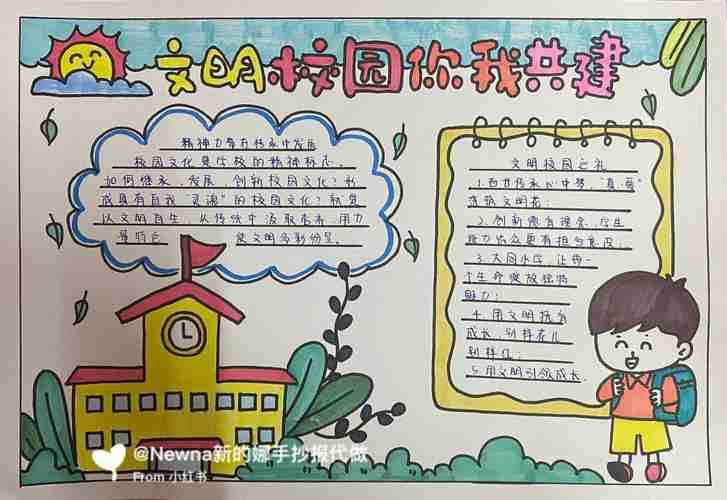 文明校园你我共建
精神力量在传承中发展
校园文化是学校的精神标志。
如何继承、发展、创新校园文化？形
成具有自我"灵魂"的校园文化？就要
以文明自生，从传统中汲取 用力
量
使文明多彩纷呈。
文明校园之礼
1.百廿传承心中梦，"真、善"
筑文明花；
2.创新 有理念，学生
能力出众更有担当意识；
3.大同小学，让每一
个生命绽放独特
魅力；
4.用文明抚育
成长，别样花儿
别样红；
5.用文明引领成长。
@Newna新的娜手抄报代做
From 小红书